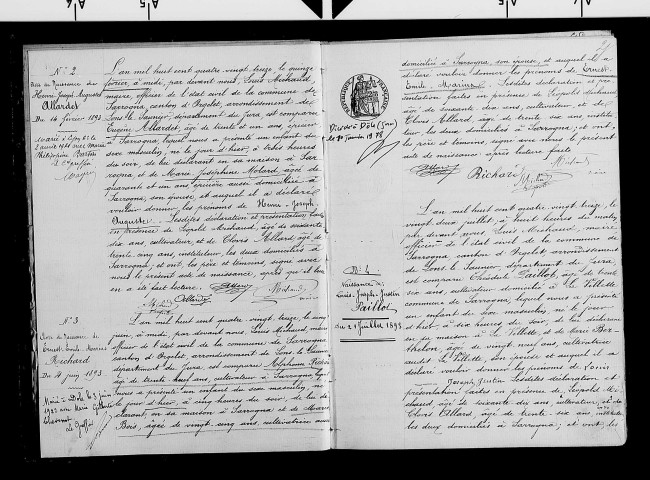 N° 2
Acte de Naissance de
Henri Joseph Auguste
Allardet
Du 14 février 1893
Marié à
2 avril 1921 avec Marie
Philippine
L'an mil huit cent quatre vingt treize le quinze
février, à midi, par devant nous, Louis Michaud,
maire, officier de l'état civil de la commune de
Sarrogna, canton d'Orgelet, arrondissement de
Lons le Saunier, département du Jura, est comparu
Eugène Allardet, âgé de trente et un ans, épicier
à Sarrogna, lequel nous a présenté un enfant du
sexe masculin, né le jour d'hier, à trois heures
du soir, de lui déclarant en sa maison à Sar
rogna et de Marie Joséphine Molard, âgée de
quarante et un ans, épicière aussi domiciliée à
Sarrogna, son épouse, et auquel il a déclaré
vouloir donner les prénoms de Henri-Joseph-
Auguste. Lesdites déclaration et présentation faites
en présence de Léopold Michaud, âgé de soixante
dix ans, cultivateur, et de Clovis Allard, âgé de
trente cinq ans, instituteur, les deux domiciliés à
Sarrogna, et ont, les père et témoins, signé avec
nous le présent acte de naissance, après qu'il leur
en a été fait lecture.
N° 3
Acte de Naissance de
Ernest Emile Marius
Richard
Du 14 juin 1893
Marié à Dole le 3 juin
1922 avec Marie
L'an mil huit cent quatre vingt treize, le quinze
juin, à midi, par devant nous Louis Michaud, maire
officier de l'état civil de la commune de Sarrogna
canton d'Orgelet, arrondissement de Lons-le-Saunier
département du Jura, est comparu Alphonse Richard
âgé de trente-neuf ans, cultivateur à Sarrogna lequel
nous a présenté un enfant du sexe masculin, né
le jour d'hier, à cinq heures du soir, de lui dé
clarant, en sa maison à Sarrogna et de Marie
Bois, âgée de vingt-cinq ans, cultivatrice aussi
REPUBLIQUE FRANÇAISE
Décédé à Dôle (Jura)
le 1er janvier 1978
domiciliée à Sarrogna, son épouse, et auquel il a
déclaré vouloir donner les prénoms de Ernest
Emile-Marius. Lesdites déclaration et pré
sentation faites en présence de Léopold Michaud
âgé de soixante dix ans, cultivateur, et de
Clovis Allard, âgé de trente six ans, institu
teur, les deux domiciliés à Sarrogna; et ont,
les père et témoins, signé avec nous le présent
acte de naissance après lecture faite
Richard
N° 4
Naissance de
Louis-Joseph-Justin
Paillot
du 21 juillet 1893
L'an mil huit cent quatre vingt treize, le
vingt deux juillet, à huit heures du matin
par devant nous, Louis Michaud, maire
officier de l'état civil de la commune de
Sarrogna canton d'Orgelet arrondissement
de Lons-le-Saunier, département du Jura,
est comparu Paillot, âgé de trente
dix ans, cultivateur domicilié à la Villette
commune de Sarrogna, lequel nous a présenté
un enfant du sexe masculin, né le jour
d'hier, à six heures du soir, de lui déclarant
en sa maison à la Villette et de Marie Ber
thelon, âgée de vingt-neuf ans, cultivatrice
audit la Villette, son épouse et auquel il a
déclaré vouloir donner les prénoms de Louis
Joseph Justin Lesdites déclaration et
présentation faites en présence de Léopold Mi
chaud, âgé de soixante dix ans, cultivateur, et de
Clovis Allard, âgé de trente-six ans, instituteur
les deux domiciliés à Sarrogna; et ont les